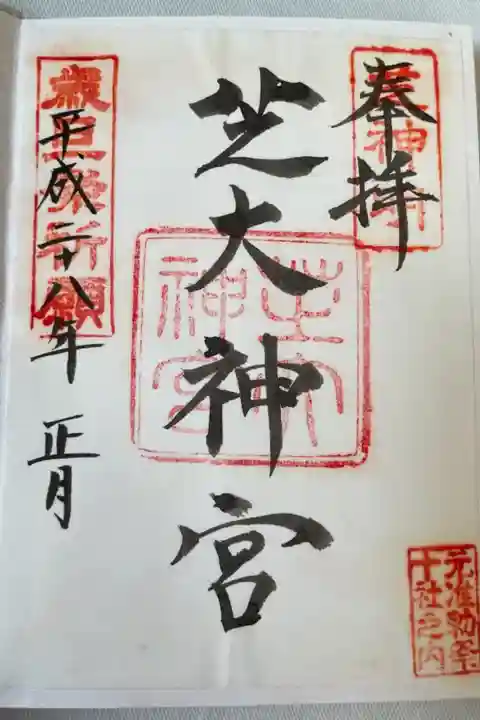 奉拝
芝大神宮
芝大
神宮
平成二十八年 正月
元准勅祭
十社之内